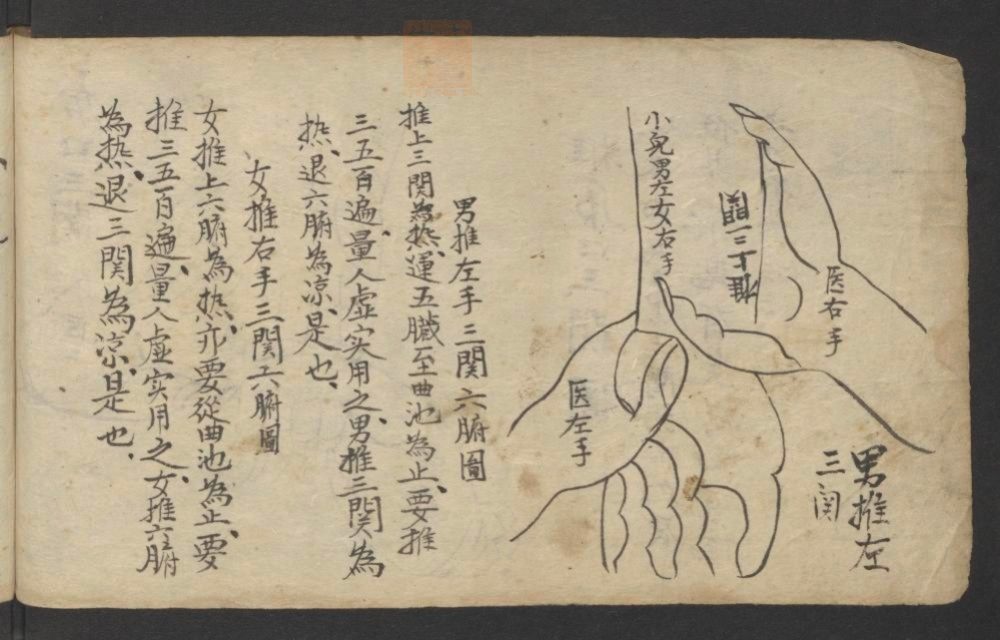 男推左
三関
医右手
推上三関
小兒男左女右手
医左手
男推左手三関六腑圖
推上三関為热、運五臓至曲池為止、要推
三五百遍、量人虛实用之、男推三関為
热、退六腑為凉是也、
女推右手三関六腑圖
女推上六腑為热、亦要從曲池為止、要
推三五百遍、量人虛实用之、女推六腑
為热、退三関為凉是也、